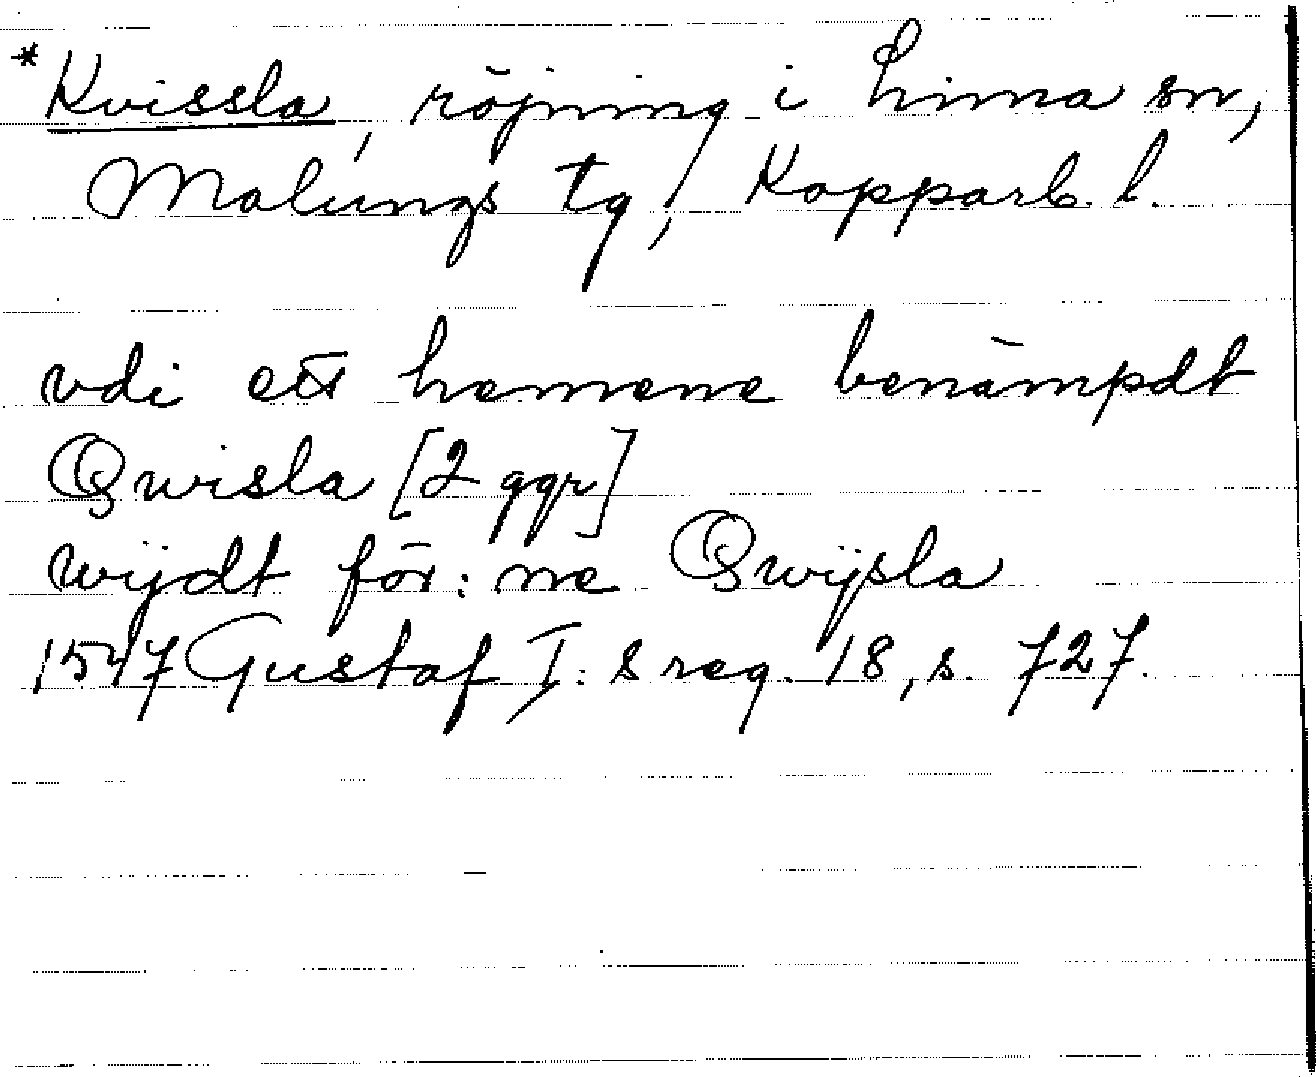 *Kvissla, röjning i Lima sn,
Malungs tg, Kopparb. l.
vdi ett hemene benämpdt
Qwisla [2 ggr]
wijdt för: ne Qwijsla
1547 Gustaf I:s reg. 18, s. 727.